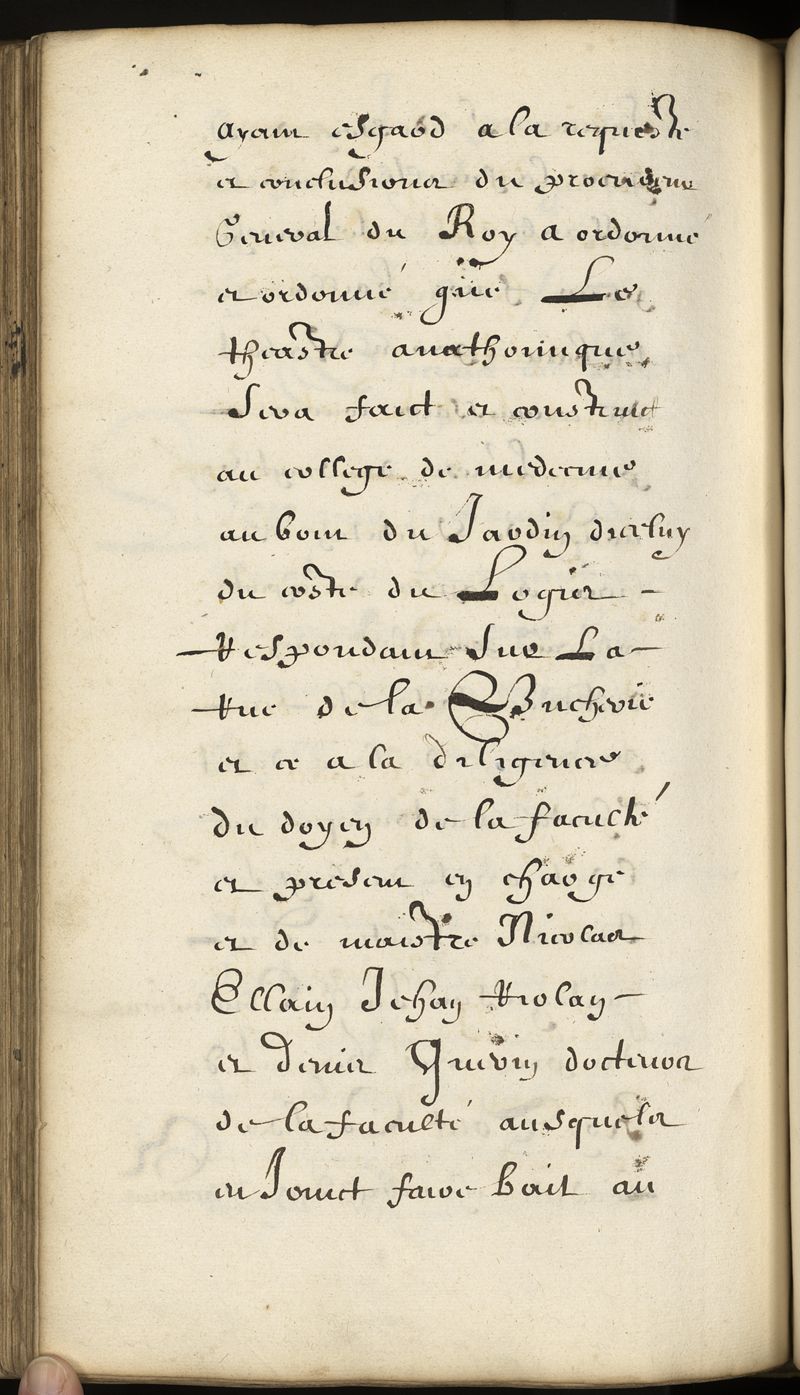 ayant esgard a la requeste
et conclusions du procureur
General du Roy a ordonné
et ordonné que Le
theastre anathomique
Sera faict et construict
au college de medecine
au bout du Jardin diceluy
du coste du Logis –
Respondant Sur La –
Rue de la Bucherie
et ce a la diligence
du doyen de la faculté
et present en charge
et de maistre Nicolas
Ellain Jehan Riolan –
et Denis Guerin docteurs
de la faculté ausquels
en Joinct faire bail au